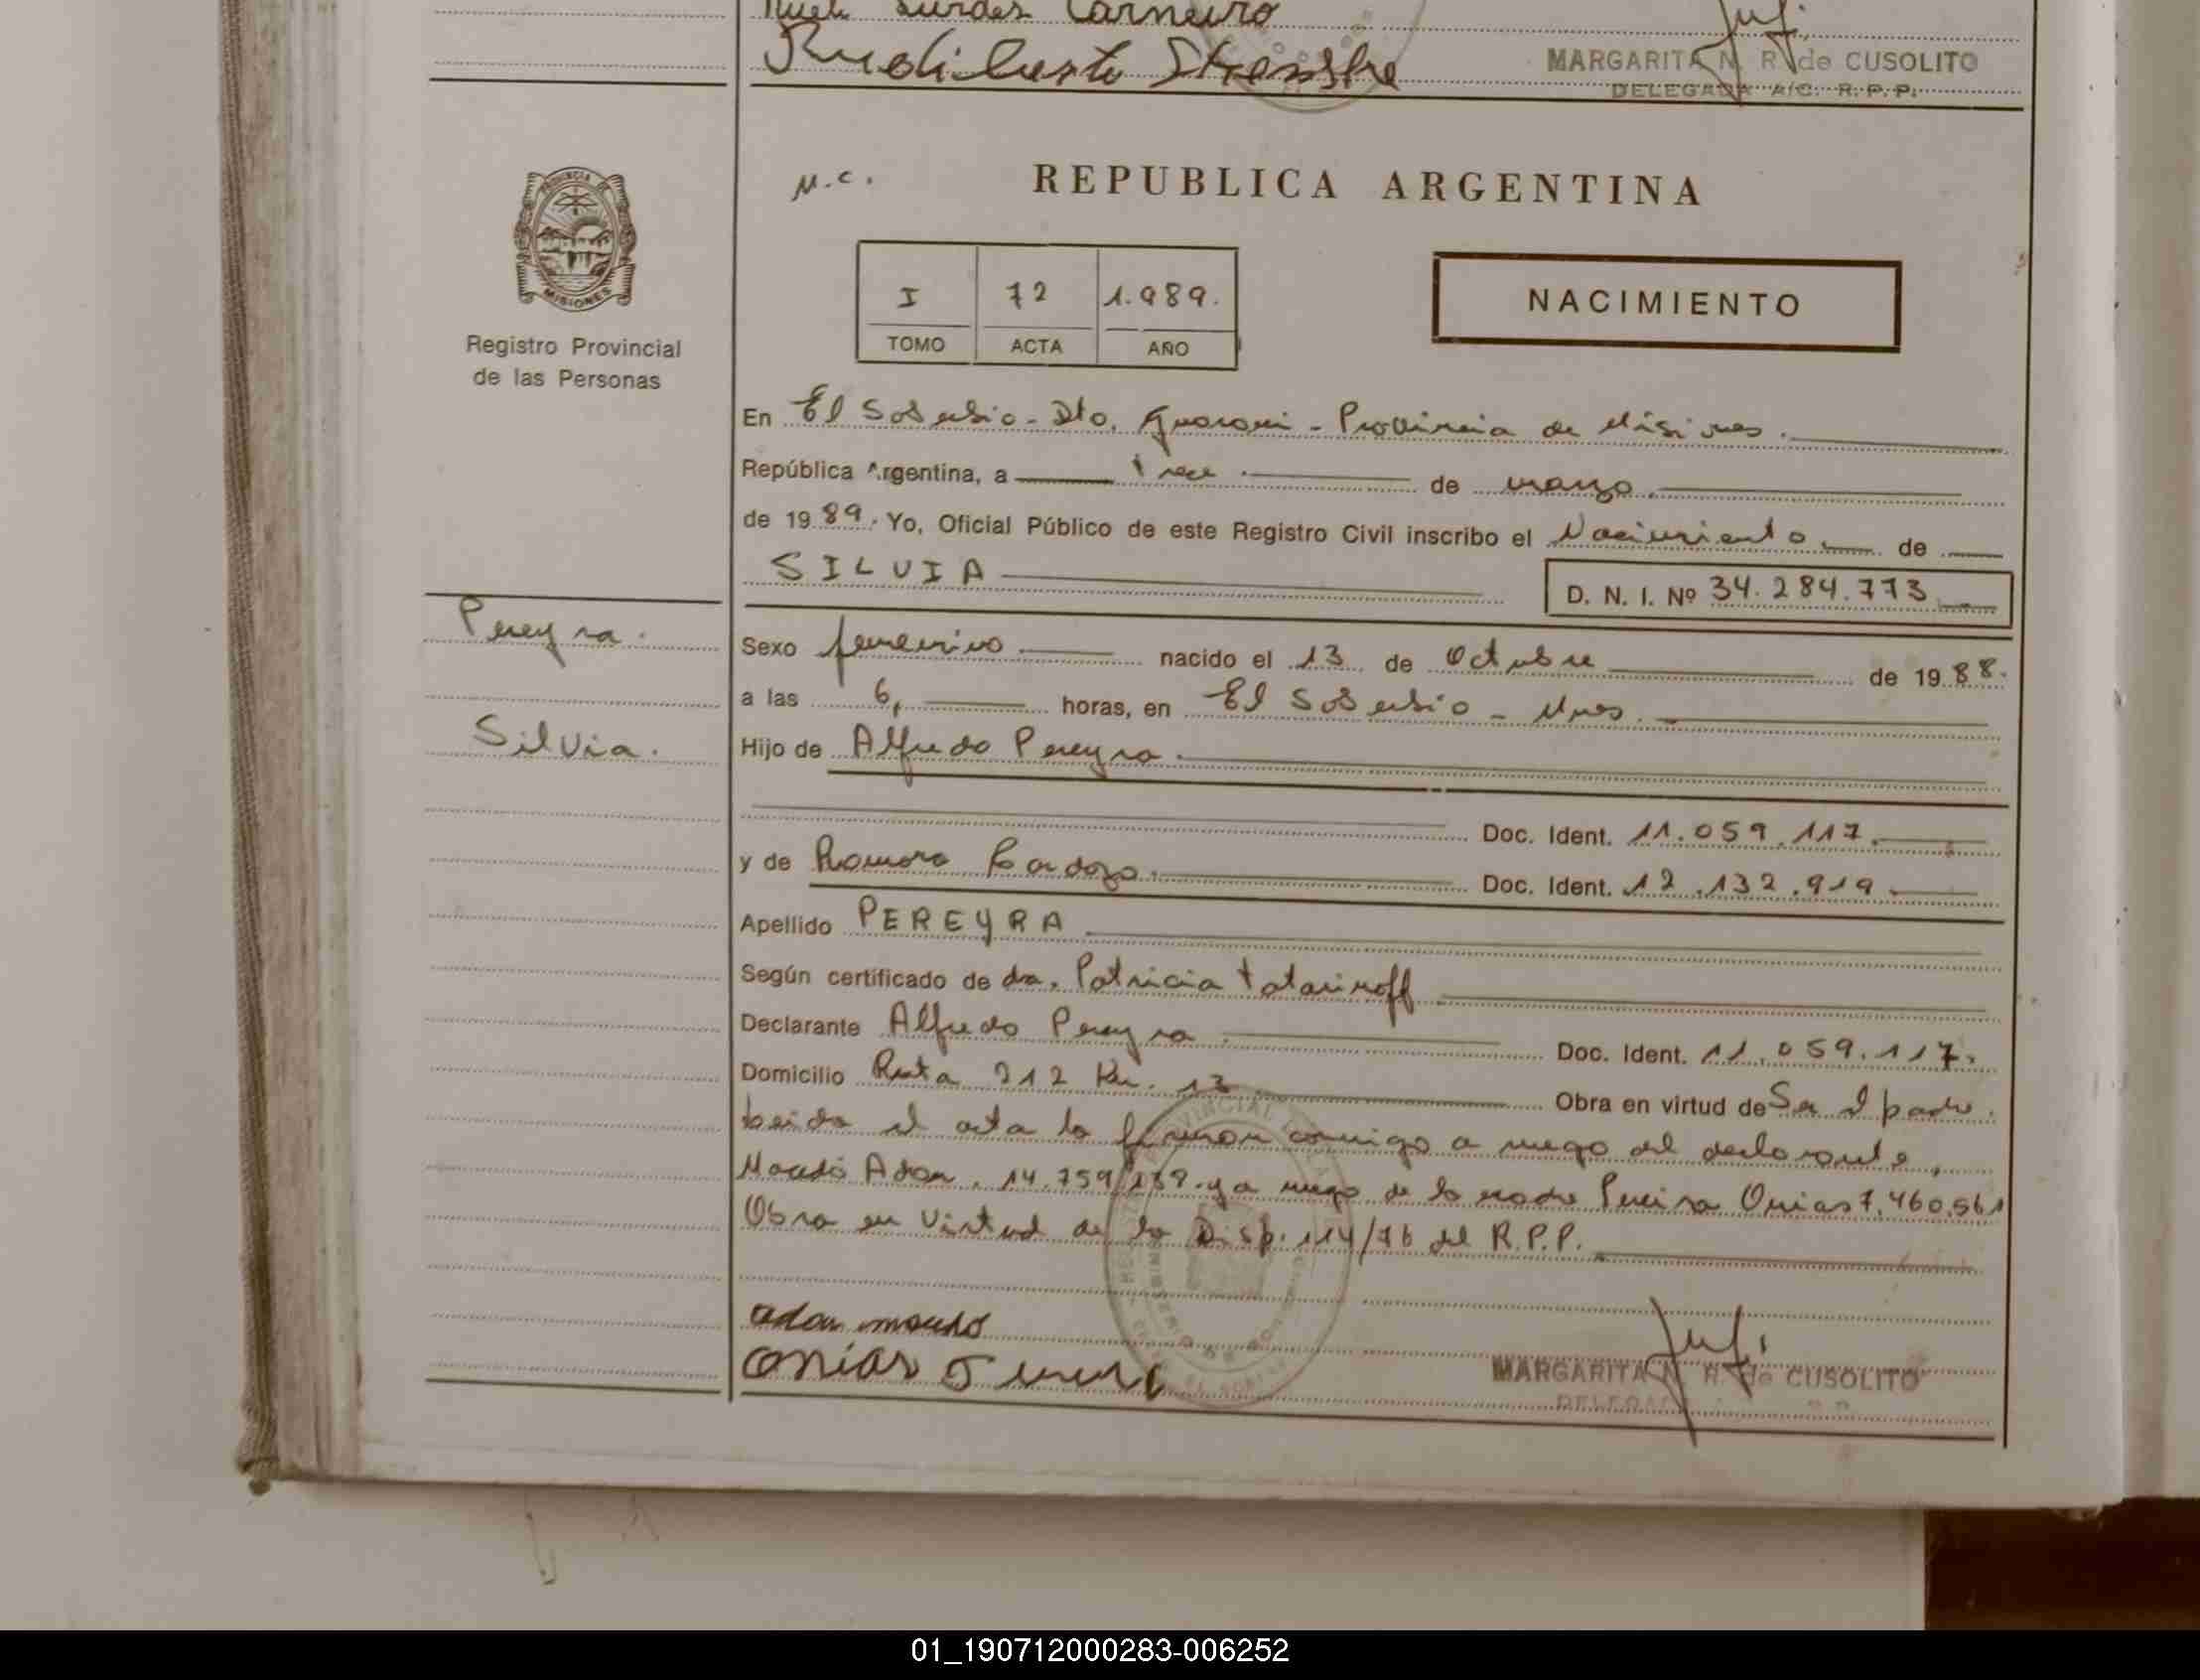 Lurdes Carneiro
MARGARITA N. R. de CUSOLITO
DELEGADA A/C. R. P. P.
PROVINCIA DE
MISIONES
Registro Provincial
de las Personas
M.C.
REPUBLICA ARGENTINA
I 72 1.989.
TOMO ACTA AÑO
NACIMIENTO
En El Soberbio - Dto. Guarani - Provincia de Misiones.
República Argentina, a trece de marzo.
de 1989. Yo, Oficial Público de este Registro Civil inscribo el Nacimiento de
SILVIA
D. N. I. Nº 34.284.773
Pereyra.
Silvia.
Sexo femenino nacido el 13 de Octubre de 1988.
a las 6, horas, en El Soberbio - Mnes.
Hijo de Alfredo Pereyra
Doc. Ident. 11.059.117.
y de Ramona Cardozo. Doc. Ident. 12.132.919.
Apellido PEREYRA
Según certificado de dra. Patricia Tatarinoff
Declarante Alfredo Pereyra. Doc. Ident. 11.059.117.
Domicilio Ruta 212 Km. 13 Obra en virtud de Ser el padre.
Leida el acta la firman conmigo a ruego del declarante,
Macedo Adan. 14.759.189. y a ruego de la madre Pereira Onias 7.460.561
Obra en virtud de la Disp. 114/76 del R.P.P.
adan macedo
onias
MARGARITA N. R. de CUSOLITO
01_190712000283-006252